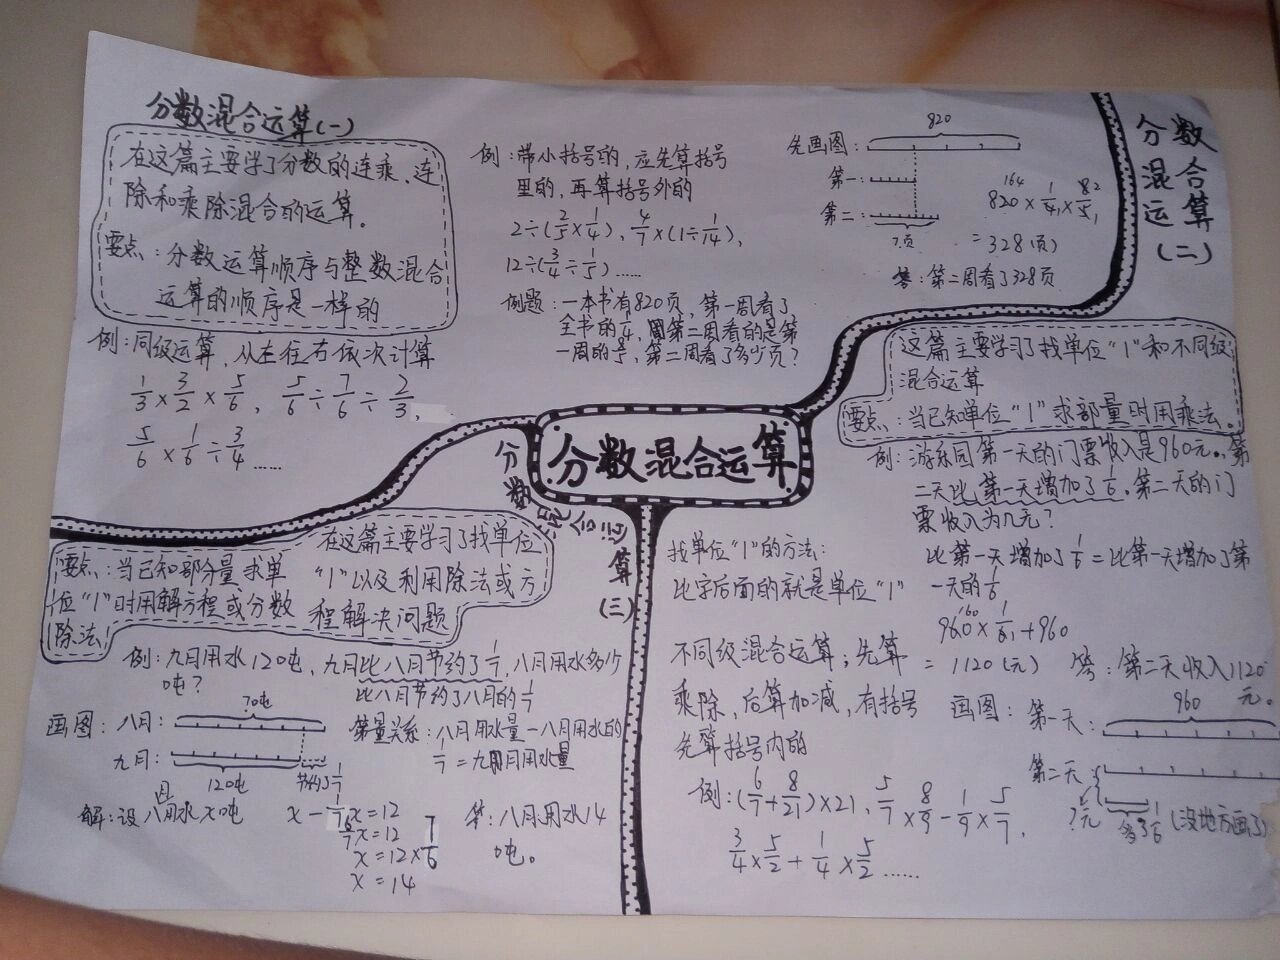 分数混合运算(一)
在这篇主要学了分数的连乘、连
除和乘除混合的运算。
要点:分数运算顺序与整数混合
运算的顺序是一样的
例:同级运算,从左往右依次计算
1/3×3/2×5/6, 5/6÷7/6÷2/3,
5/6×1/6÷3/4……
例:带小括号的,应先算括号
里的,再算括号外的
2÷(2/5×1/4)、4/7×(1÷1/14)、
12÷(3/4÷1/5)……
例题:一本书有820页,第一周看了
全书的1/4,第二周看的是第
一周的8/5,第二周看了多少页?
先画图:
820
第一:
第二:
?页
164 1 8 2
820×1/4×8/5
=328(页)
答:第二周看了328页
分数
混合
运算
(二)
这篇主要学习了找单位“1”和不同级
混合运算
要点:当已知单位“1”求部量时用乘法。
例:游乐园第一天的门票收入是960元。第
二天比第一天增加了1/6,第二天的门
票收入为几元?
比第一天增加了1/6=比第一天增加了第
一天的1/6
160
960×1/6+960
=1120(元) 答:第二天收入1120
元。
画图:第一天:
960
第二天
?元
多了1/6(没地方画了)
找单位“1”的方法:
比字后面的就是单位“1”
不同级混合运算;先算
乘除,后算加减,有括号
先算括号内的
例:(6/7+8/21)×21, 5/7×8/9-1/9×5/7,
3/4×5/2+1/4×5/2……
分数混合运算
分数混合运算(三)
在这篇主要学习了找单位
“1”以及利用除法或方
程解决问题
要点:当已知部分量求单
位“1”时用解方程或分数
除法
例:九月用水120吨,九月比八月节约了1/7,八月用水多少
吨?
比八月节约了八月的1/7
画图:八月:
?吨
九月:
120吨
节约了1/7
等量关系:八月用水量-八月用水的
1/7=九月用水量
解:设八月用水x吨
x-1/7x=12
6/7x=12
x=12×7/6
x=14
答:八月用水14
吨。